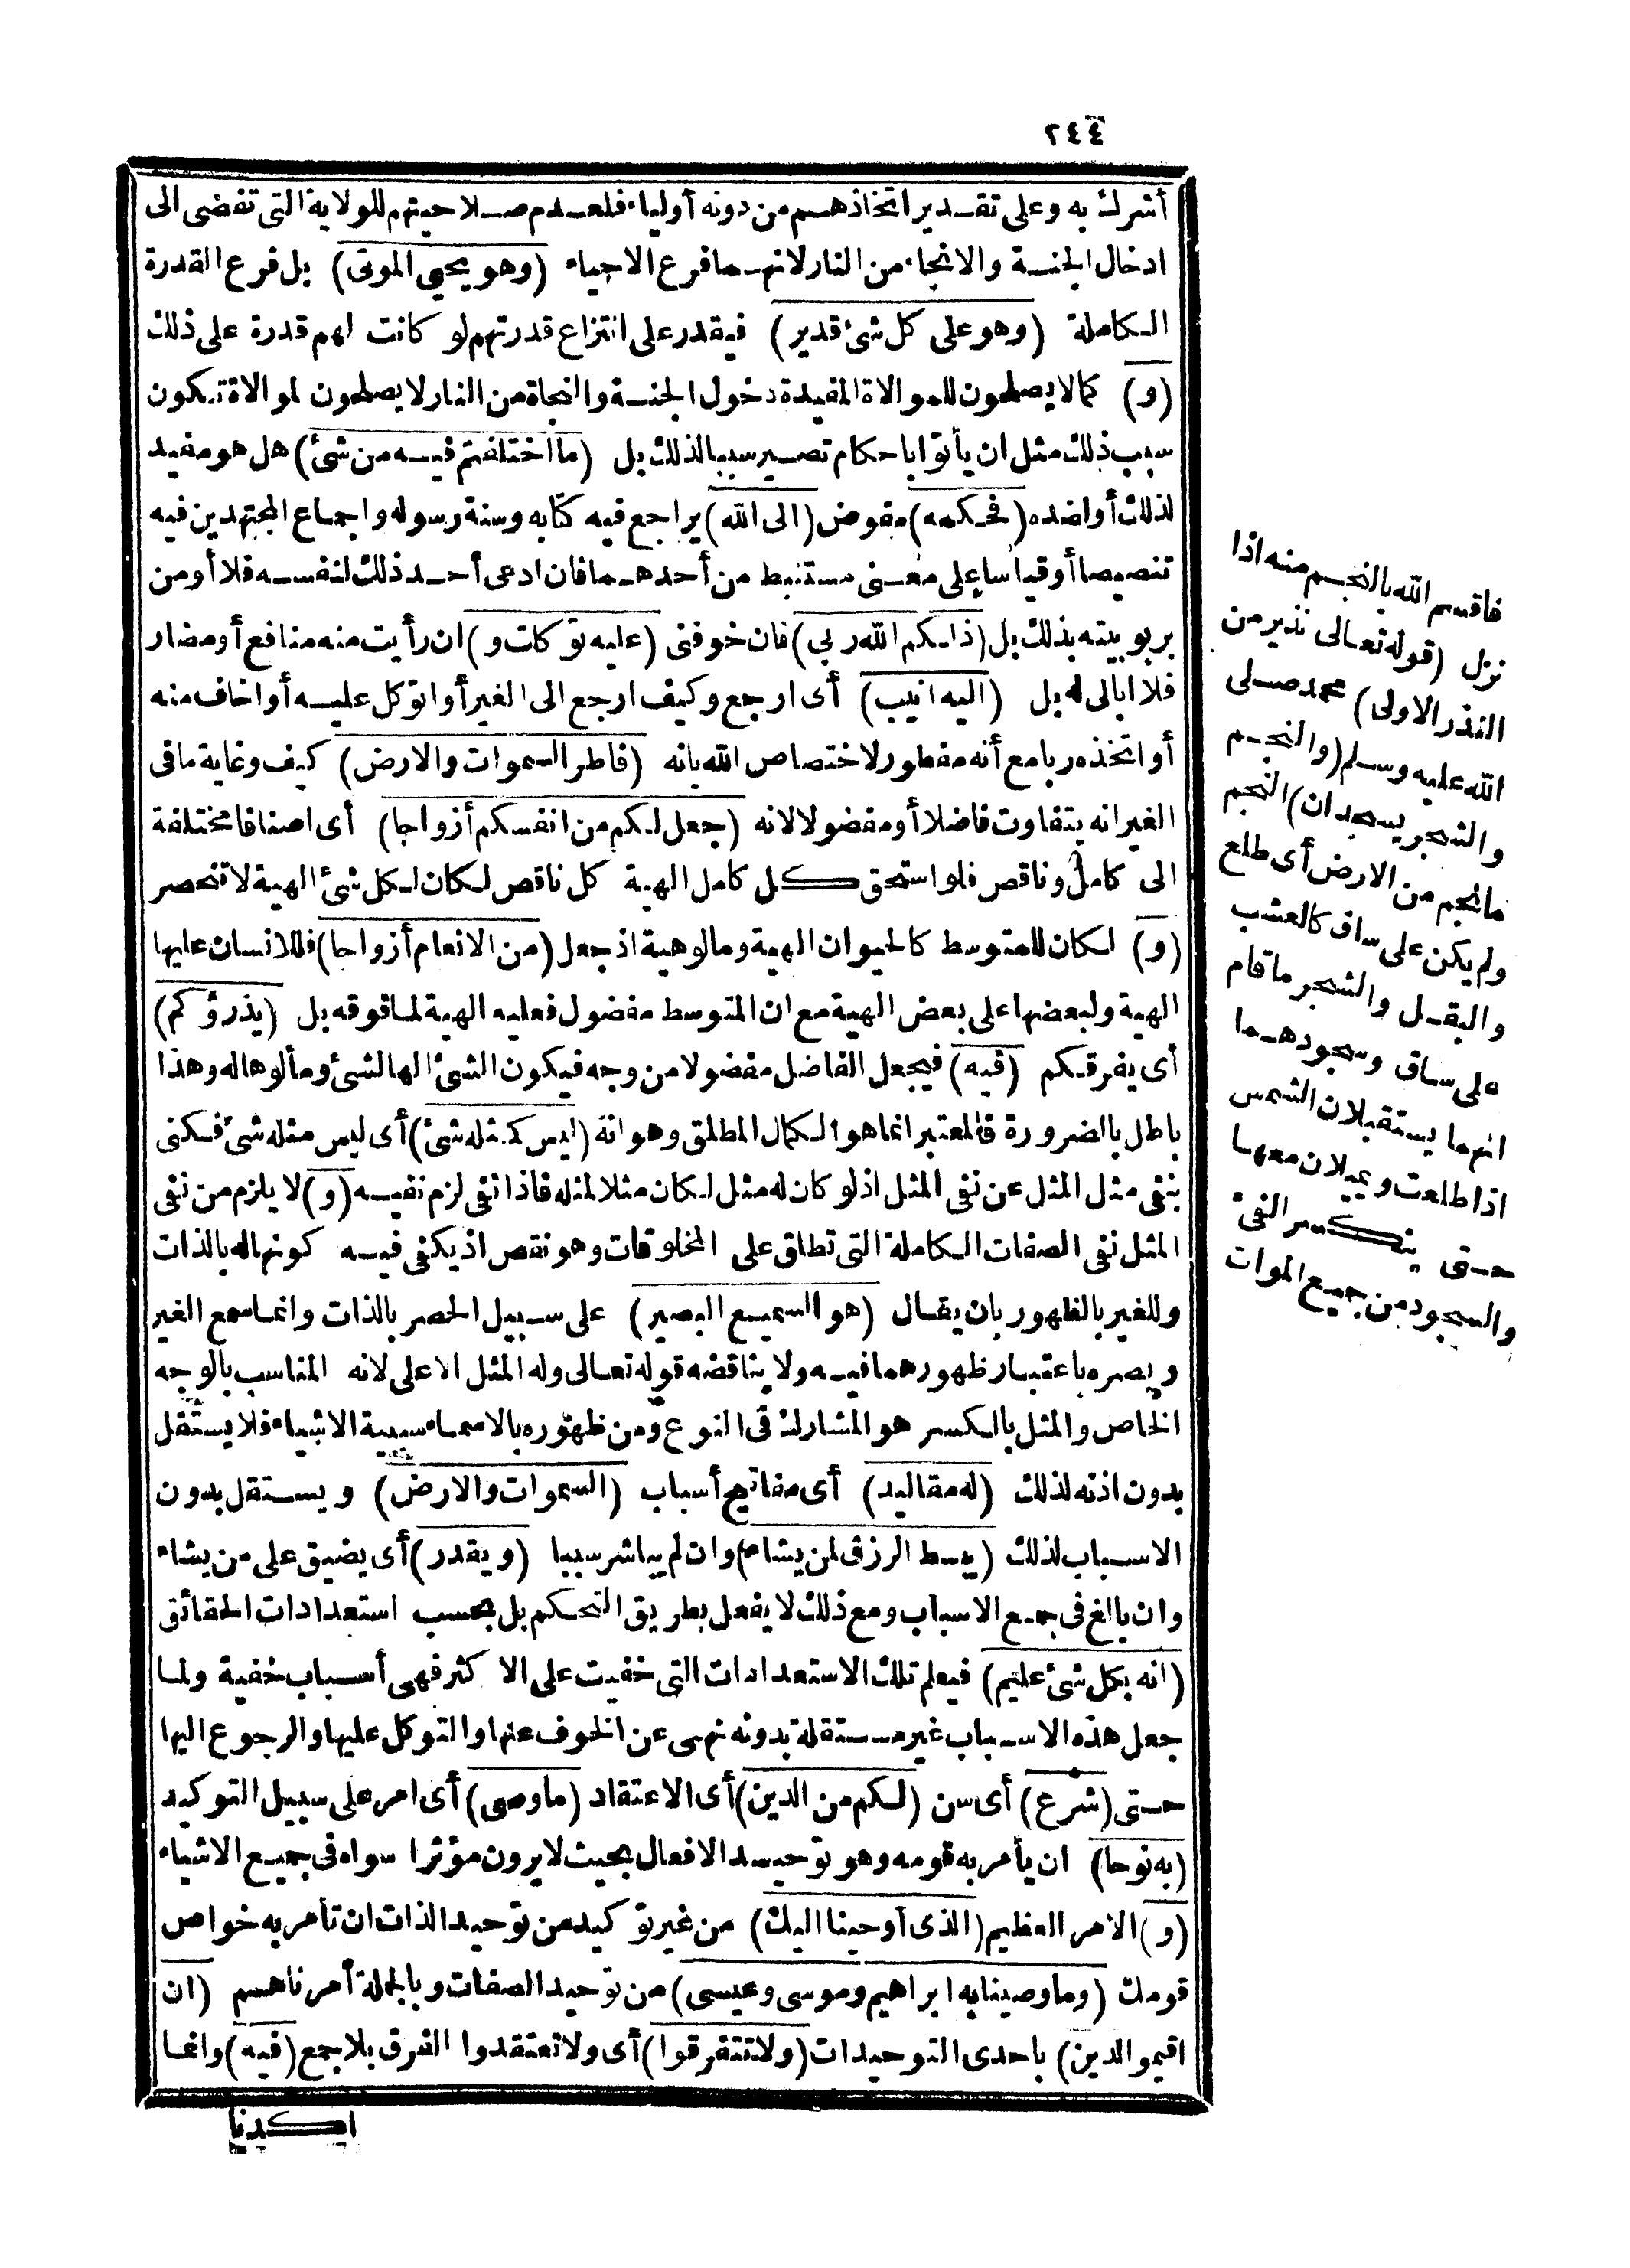 ٢٤٤
أشرك به وعلى تقدير اتخاذهم من دونه أولياء فلعدم صلاحيتهم للولاية التى تفضى الى
ادخال الجنة والانجاء من النار لانهما فرع الاحياء (وهو يحيى الموتى) بل فرع القدرة
الكاملة (وهو على كل شئ قدير) فيقدر على انتزاع قدرتهم لو كانت لهم قدرة على ذلك
(و) كما لا يصلحون للموالاة المفيدة دخول الجنة والنجاة من النار لا يصلحون لموالاة تكون
سبب ذلك مثل ان يأتوا باحكام تصير سببا لذلك بل (ما اختلفتم فيه من شئ) هل هو مفيد
لذلك أو لضده (فحكمه) مفوض (الى الله) يراجع فيه كتابه وسنة رسوله واجماع المجتهدين فيه
تنصيصا أو قياسا على معنى مستنبط من أحدهما فان ادعى أحد ذلك لنفسه فلا أومن
بربوبيته بذلك بل (ذلكم الله ربى) فان خوفنى (عليه توكلت و) ان رأيت منه منافع أو مضار
فلا ابالى له بل (اليه انيب) أى ارجع وكيف ارجع الى الغير أو اتوكل عليه أو اخاف منه
أو اتخذه ربا مع أنه مفطور لاختصاص الله بانه (فاطر السموات والارض) كيف وغاية ما فى
الغير انه يتفاوت فاضلا أو مفضولا لانه (جعل لكم من انفسكم أزواجا) أى اصنافا مختلفة
الى كامل وناقص فلو استحق كل كامل الهية كل ناقص لكان لكل شئ الهية لا تنحصر
(و) لكان للمتوسط كالحيوان الهية ومالوهية اذ جعل (من الانعام أزواجا) فللانسان عليها
الهية ولبعضها على بعض الهية مع ان المتوسط مفضول فعليه الهية لما فوقه بل (يذرؤكم)
أى يفرقكم (فيه) فيجعل الفاضل مفضولا من وجه فيكون الشئ الها لشئ ومألوها له وهذا
باطل بالضرورة فالمعتبر انما هو الكمال المطلق وهو انه (ليس كمثله شئ) أى ليس مثله شئ فكنى
بنفى مثل المثل عن نفى المثل اذ لو كان له مثل لكان مثلا لمثله فاذا نفى لزم نفيه (و) لا يلزم من نفى
المثل نفى الصفات الكاملة التى تطلق على المخلوقات وهو نقص اذ يكفى فيه كونها له بالذات
وللغير بالظهور بان يقال (هو السميع البصير) على سبيل الحصر بالذات وانما سمع الغير
وبصره باعتبار ظهورهما فيه ولا يناقضه قوله تعالى وله المثل الاعلى لانه المناسب بالوجه
الخاص والمثل بالكسر هو المشارك فى النوع ومن ظهوره بالاسماء سببية الاشياء فلا يستقل
بدون اذنه لذلك (له مقاليد) أى مفاتيح أسباب (السموات والارض) ويستقل بدون
الاسباب لذلك (يبسط الرزق لمن يشاء) وان لم يباشر سببا (ويقدر) أى يضيق على من يشاء
وان بالغ فى جمع الاسباب ومع ذلك لا يفعل بطريق التحكم بل بحسب استعدادات الحقائق
(انه بكل شئ عليم) فيعلم تلك الاستعدادات التى خفيت على الاكثر فهى أسباب خفية ولما
جعل هذه الاسباب غير مستقلة بدونه نهى عن الخوف عنها والتوكل عليها والرجوع اليها
حتى (شرع) أى سن (لكم من الدين) أى الاعتقاد (ما وصى) أى امر على سبيل التوكيد
(به نوحا) ان يأمر به قومه وهو توحيد الافعال بحيث لا يرون مؤثرا سواه فى جميع الاشياء
(و) الامر العظيم (الذى أوحينا اليك) من غير توكيد من توحيد الذات ان تأمر به خواص
قومك (وما وصينا به ابراهيم وموسى وعيسى) من توحيد الصفات وبالجملة أمرناهم (ان
اقيموا الدين) باحدى التوحيدات (ولا تتفرقوا) أى ولا تعتقدوا الفرق بلا جمع (فيه) وانما
اكدنا
فاقسم الله بالنجم منه اذا
نزل (قوله تعالى نذير من
النذر الاولى) محمد صلى
الله عليه وسلم (والنجم
والشجر يسجدان) النجم
ما نجم من الارض أى طلع
ولم يكن على ساق كالعشب
والبقل والشجر ما قام
على ساق وسجودهما
انهما يستقبلان الشمس
اذا طلعت ويميلان معها
حتى ينكسر الفئ
والسجود من جميع الموات